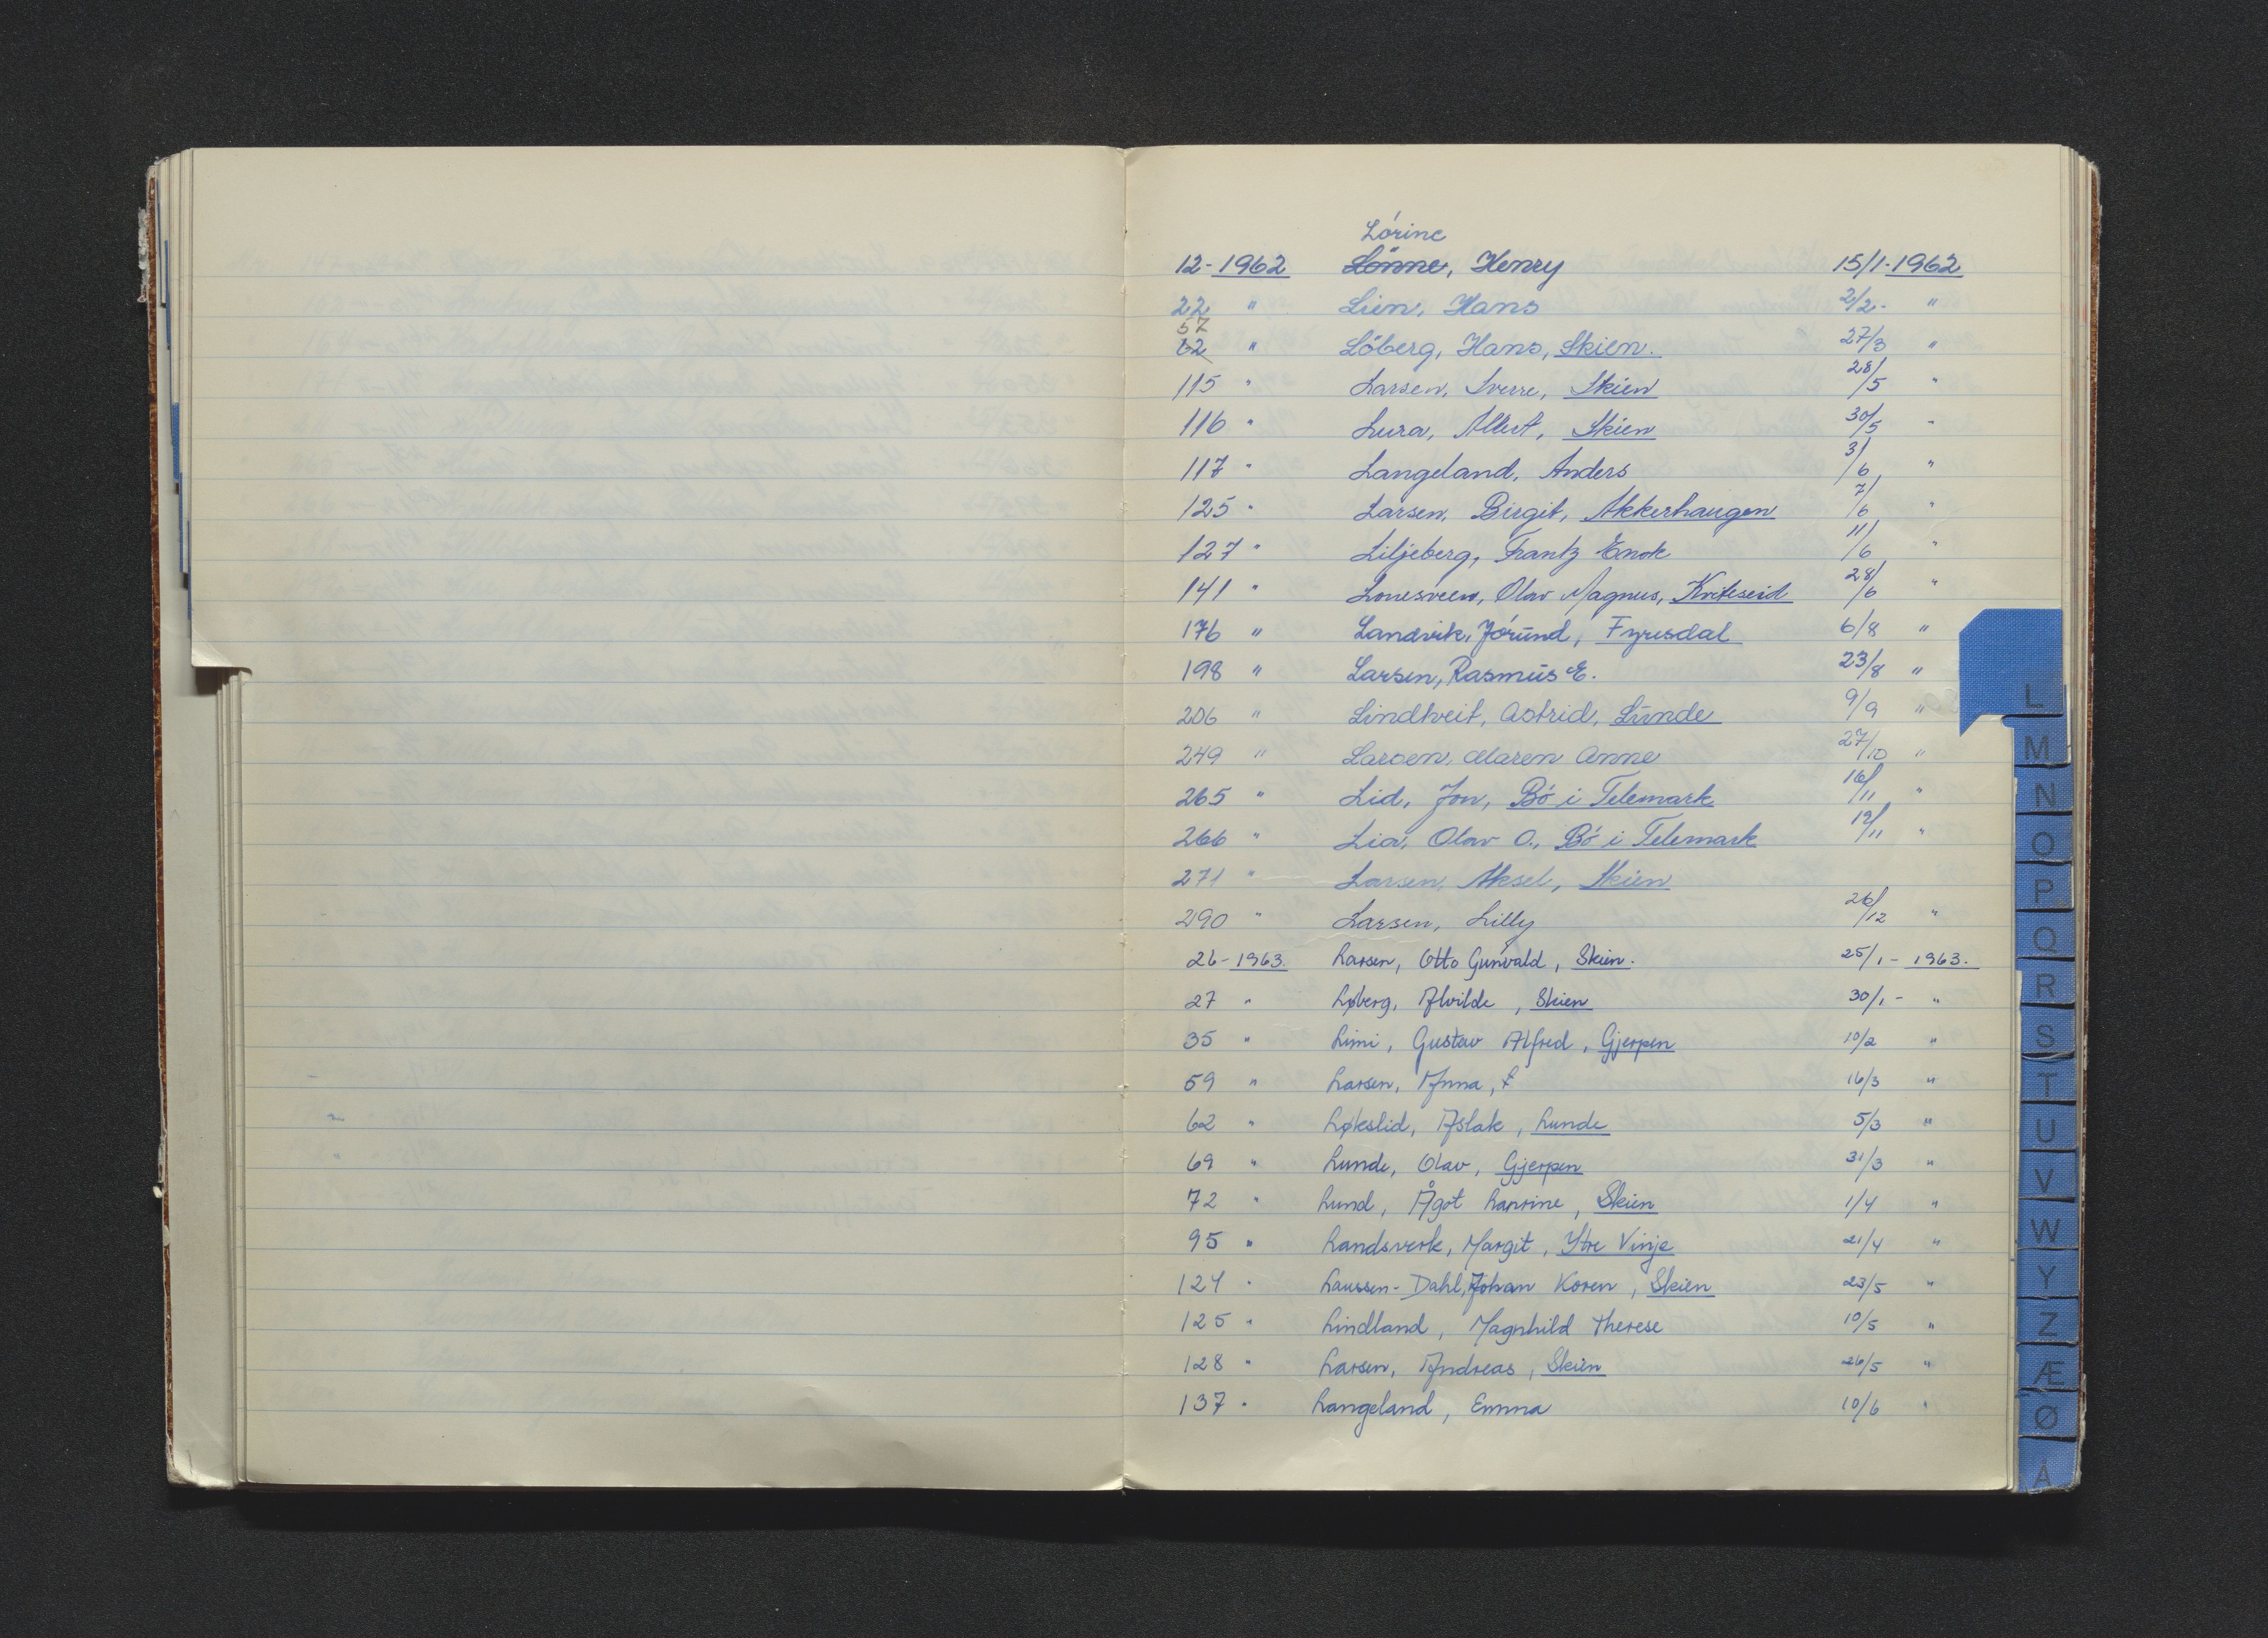 Lórine
12-1962 Lönne, Henry 15/1-1962
22 " Lien, Hans 2/2- "
57
62 " Lóberg, Hans, Skien. 27/3 "
115 " Larsen, Sverre, Skien 28/5 "
116 " Lura, Albert, Skien 30/5 "
117 " Langeland, Anders 3/6 "
125 " Larsen, Birgit, Akkerhaugen 7/6 "
127 " Liljeberg, Frantz Enok 11/6 "
141 " Lonesveen, Olav Magnus, Kviteseid 28/6 "
176 " Landvik, Jórund, Fyresdal 6/8 "
198 " Larsen, Rasmus E. 23/8 "
206 " Lindtveit, Astrid, Lunde 9/9 "
249 " Larsen, Maren Anne 27/10 "
265 " Lid, Jon, Bó i Telemark 16/11 "
266 " Lia, Olav O., Bó i Telemark 19/11 "
271 " Larsen, Aksel, Skien
290 " Larsen, Lilly 26/12 "
26-1963. Larsen, Otto Gunvald, Skien. 25/1- 1963.
27 " Løberg, Alvilde, Skien 30/1- "
35 " Limi, Gustav Alfred, Gjerpen 10/2 "
59 " Larsen, Anna, f 16/3 "
62 " Løkslid, Aslak, Lunde 5/3 "
69 " Lunde, Olav, Gjerpen 31/3 "
72 " Lund, Ågot Laurine, Skien 1/4 "
95 " Landsverk, Margit, Ytre Vinje 21/4 "
124 " Laussen-Dahl, Johan Koren, Skien 23/5 "
125 " Lindland, Magnhild Therese 10/5 "
128 " Larsen, Andreas, Skien 26/5 "
137 " Langeland, Emma 10/6 "
L
M
N
O
P
Q
R
S
T
U
V
W
Y
Z
Æ
Ø
Å